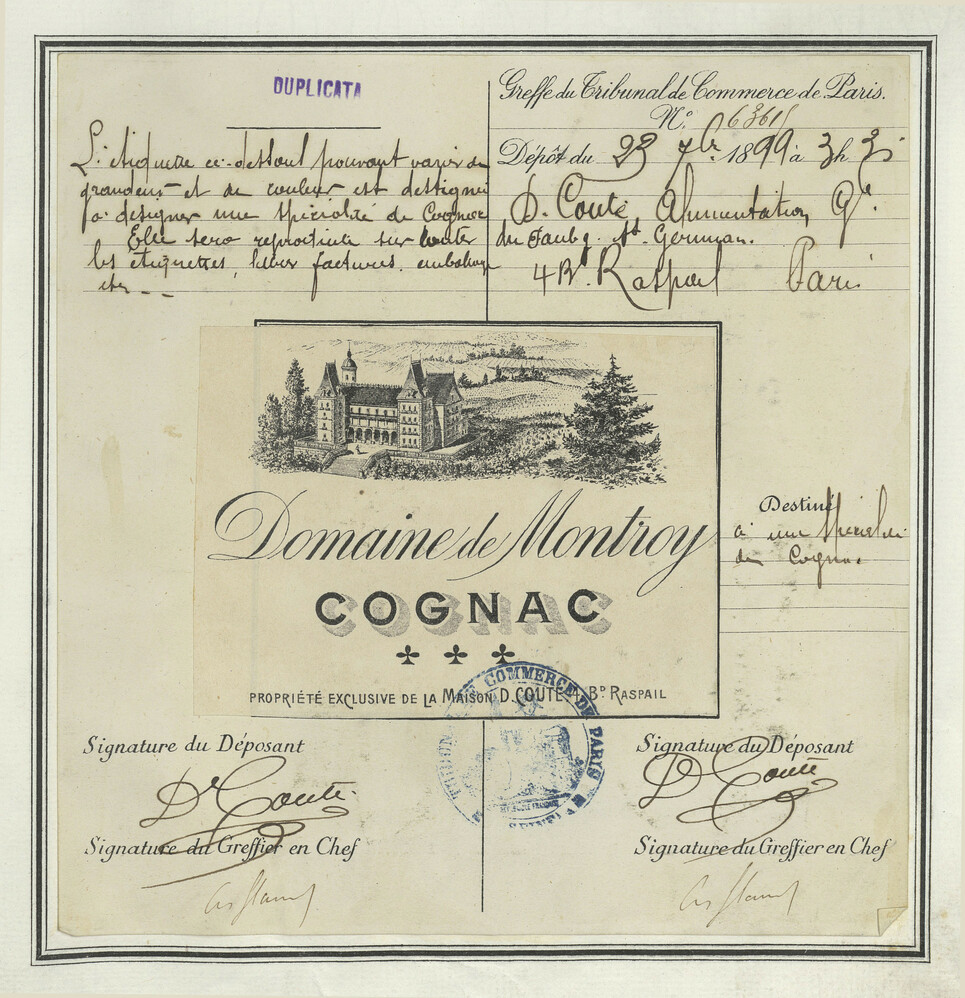 DUPLICATA
L'étiquette ci-dessous pouvant varier de
grandeur et de couleur est destignée
à désigner une spécialité de Cognac
Elle sera reproduite sur toutes
les étiquettes, factures, emballage
etc - -
Greffe du Tribunal de Commerce de Paris.
N° 6361
Dépôt du 23 7bre 1899 à 3h 3
D. Couté, Alimentation Gle
du Faubg. St. Germain.
4 Bd. Raspail Paris
Domaine de Montroy
COGNAC
PROPRIÉTÉ EXCLUSIVE DE LA MAISON D. COUTÉ 4, BD RASPAIL
Destiné
à une spécialité
de Cognac
COMMERCE DE PARIS
Signature du Déposant
D Couté
Signature du Greffier en Chef
Signature du Déposant
D Couté
Signature du Greffier en Chef